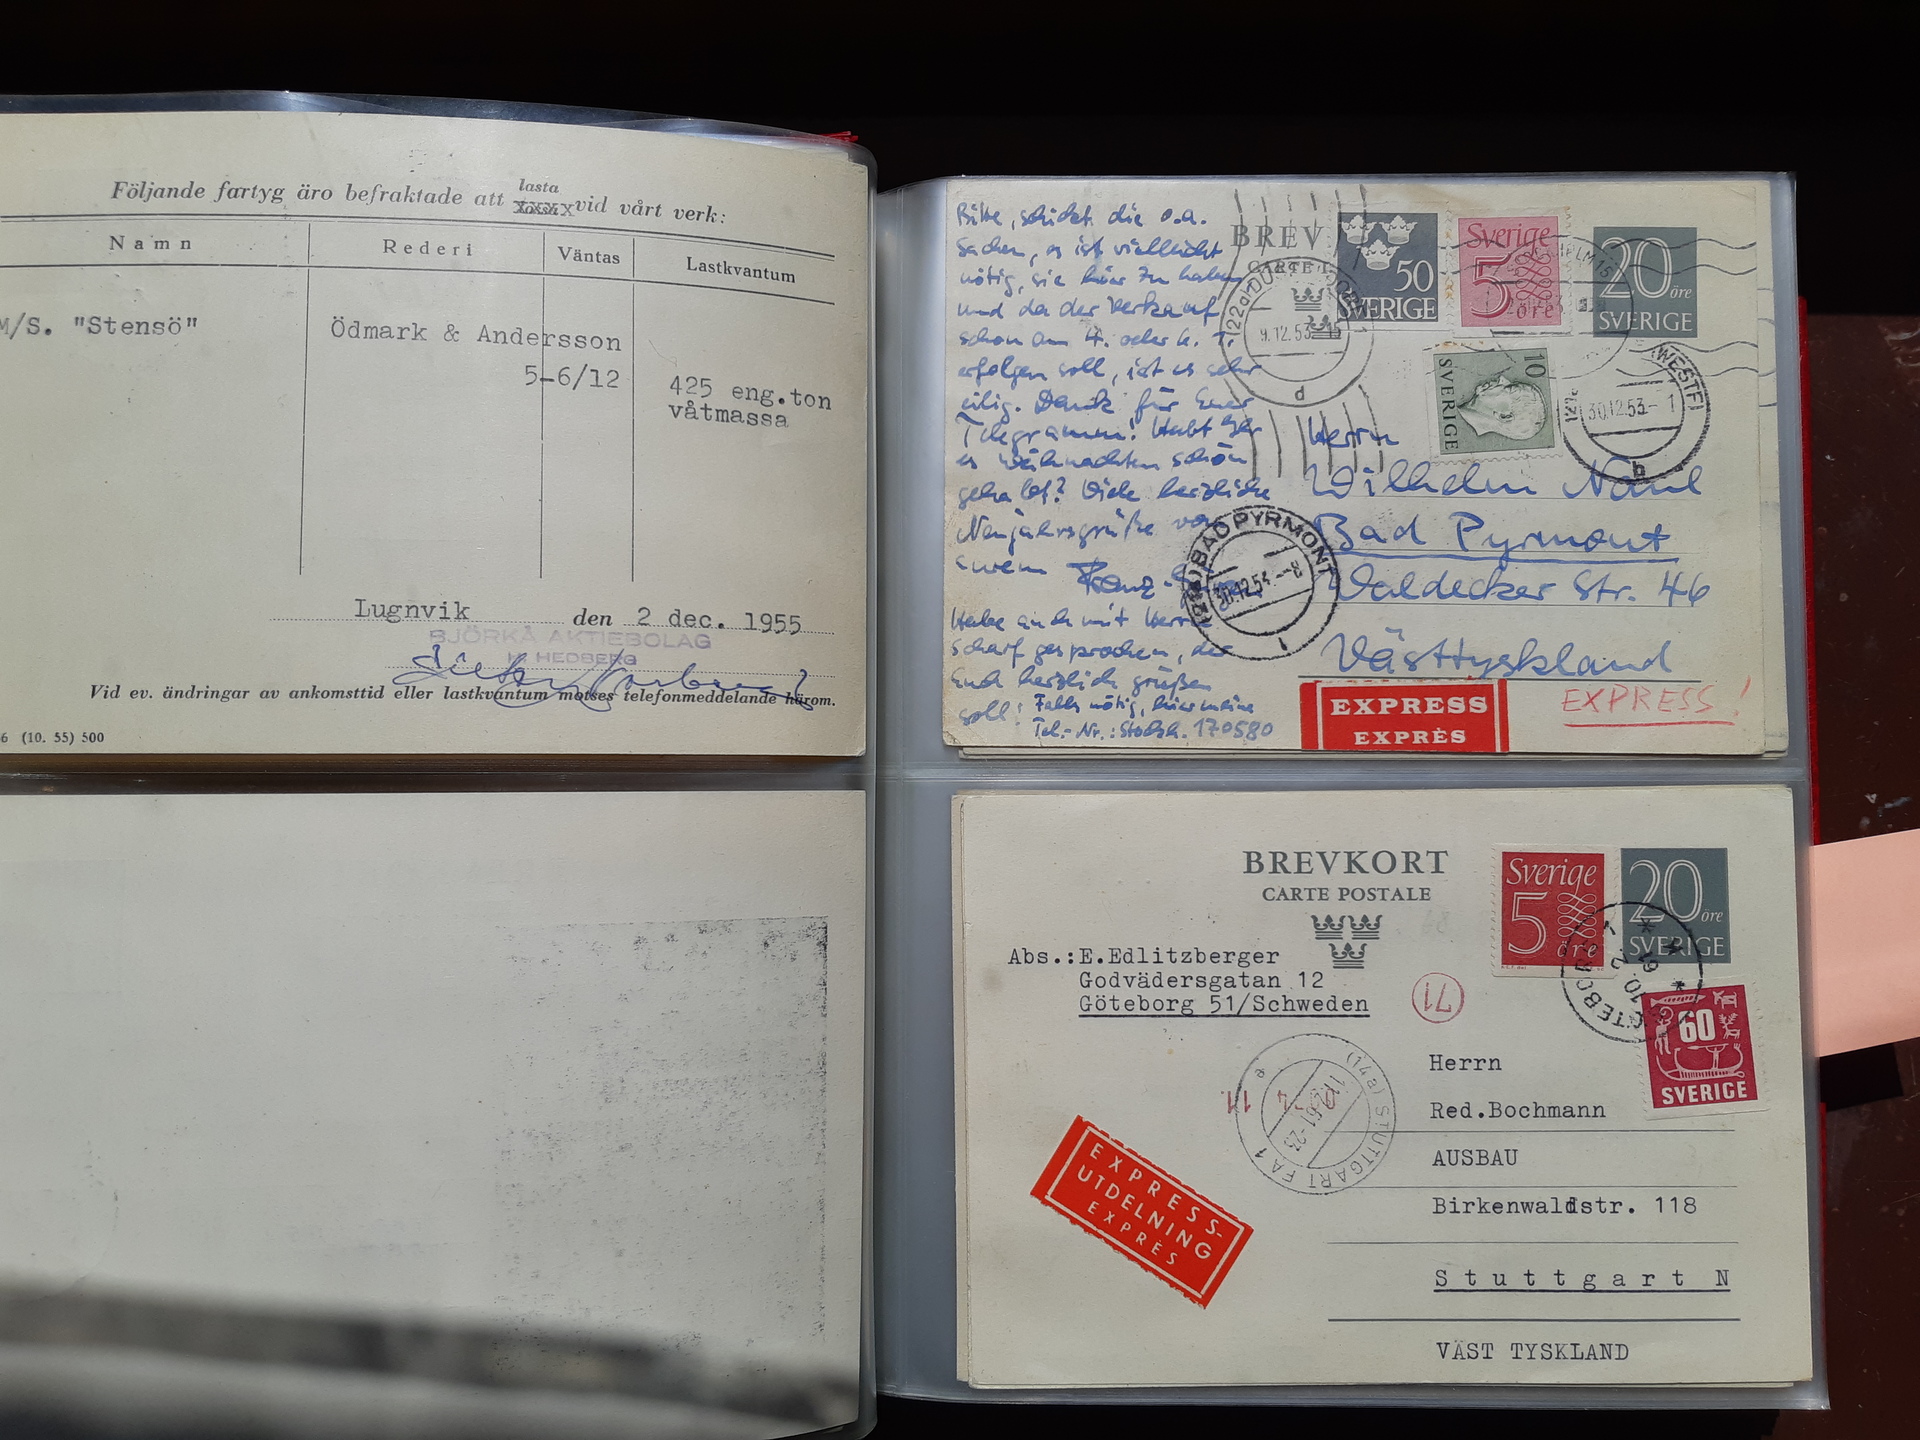 Följande fartyg äro befraktade att lasta vid vårt verk:
Namn Rederi Väntas Lastkvantum
M/S. "Stensö" Ödmark & Andersson
5-6/12
425 eng.ton
våtmassa
Lugnvik den 2 dec. 1955
BJÖRKÅ AKTIEBOLAG
H. HEDBERG
Vid ev. ändringar av ankomsttid eller lastkvantum motses telefonmeddelande härom.
6 (10. 55) 500
Bitte, schickt die o.a.
Sachen, es ist vielleicht
nötig, sie hier zu haben
und da der Verkauf
schon am 4. oder 6. 1.
erfolgen soll, ist es sehr
eilig. Dank für Euer
Telegramm! Habt Ihr
es Weihnachten schön
gehabt? Viele herzliche
Neujahrsgrüße von
Eurem
Habe auch mit Herrn
Scharf gesprochen, der
Euch herzlich grüßen
soll! Falls nötig, hier meine
Tel.-Nr.: Stockh. 170580
BREV
CARTE
50
SVERIGE
Sverige
5
öre
20 öre
SVERIGE
10
SVERIGE
9.12.53
d
(WESTF)
30.12.53.- 1
b
BAD PYRMONT
30.12.53.--8
Herrn
Wilhelm Naul
Bad Pyrmont
Waldecker Str. 46
Västtyskland
EXPRESS
EXPRÈS
EXPRESS!
BREVKORT
CARTE POSTALE
Sverige
5
öre
20 öre
SVERIGE
60
SVERIGE
GÖTEBORG
10. 2
61
Abs.:E.Edlitzberger
Godvädersgatan 12
Göteborg 51/Schweden
71
(14a) STUTTGART FA 1
a
11.2.61-23
Herrn
Red.Bochmann
AUSBAU
Birkenwaldstr. 118
Stuttgart N
VÄST TYSKLAND
EXPRESS-
UTDELNING
EXPRÈS